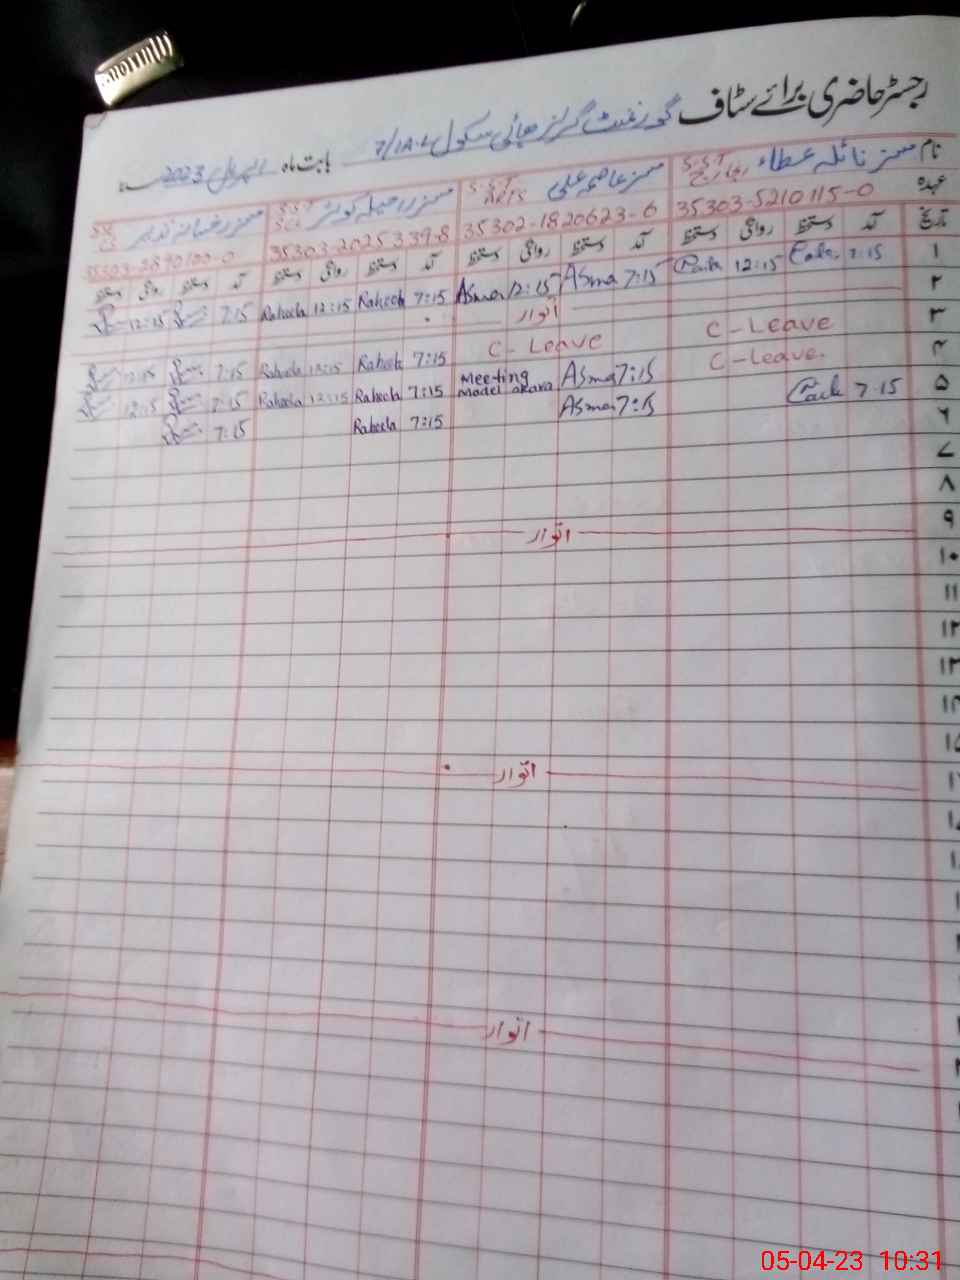 رجسٹر حاضری برائے سٹاف گورنمنٹ گرلز ہائی سکول 7/1A-L بابت ماہ اپریل 2023ء
نام مسز نائلہ عطاء مسز عاصمہ علی مسز راحیلہ کوثر مسز رخسانہ نذیر
عہدہ S.S.T انچارج S.S.T ARTS S.S.T
35303-5210115-0 35302-1820623-6 35303-2025339-8
تاریخ آمد دستخط روانگی دستخط آمد دستخط روانگی دستخط آمد دستخط روانگی دستخط آمد دستخط روانگی دستخط
۱ 7:15 12:15 7:15 Asma 12:15 Asma 7:15 Raheela 12:15 Raheela 7:15 12:15
۲ اتوار
۳ C-Leave C-Leave 7:15 Raheela 12:15 Raheela 7:15 12:15
۴ C-Leave. 7:15 Asma Meeting Model 7:15 Raheela 12:15 Raheela 7:15 12:15
۵ 7:15 7:15 Asma 7:15 Raheela 7:15
۶
۷
۸
۹ اتوار
۱۰
۱۱
۱۲
۱۳
اتوار
اتوار
05-04-23 10:31